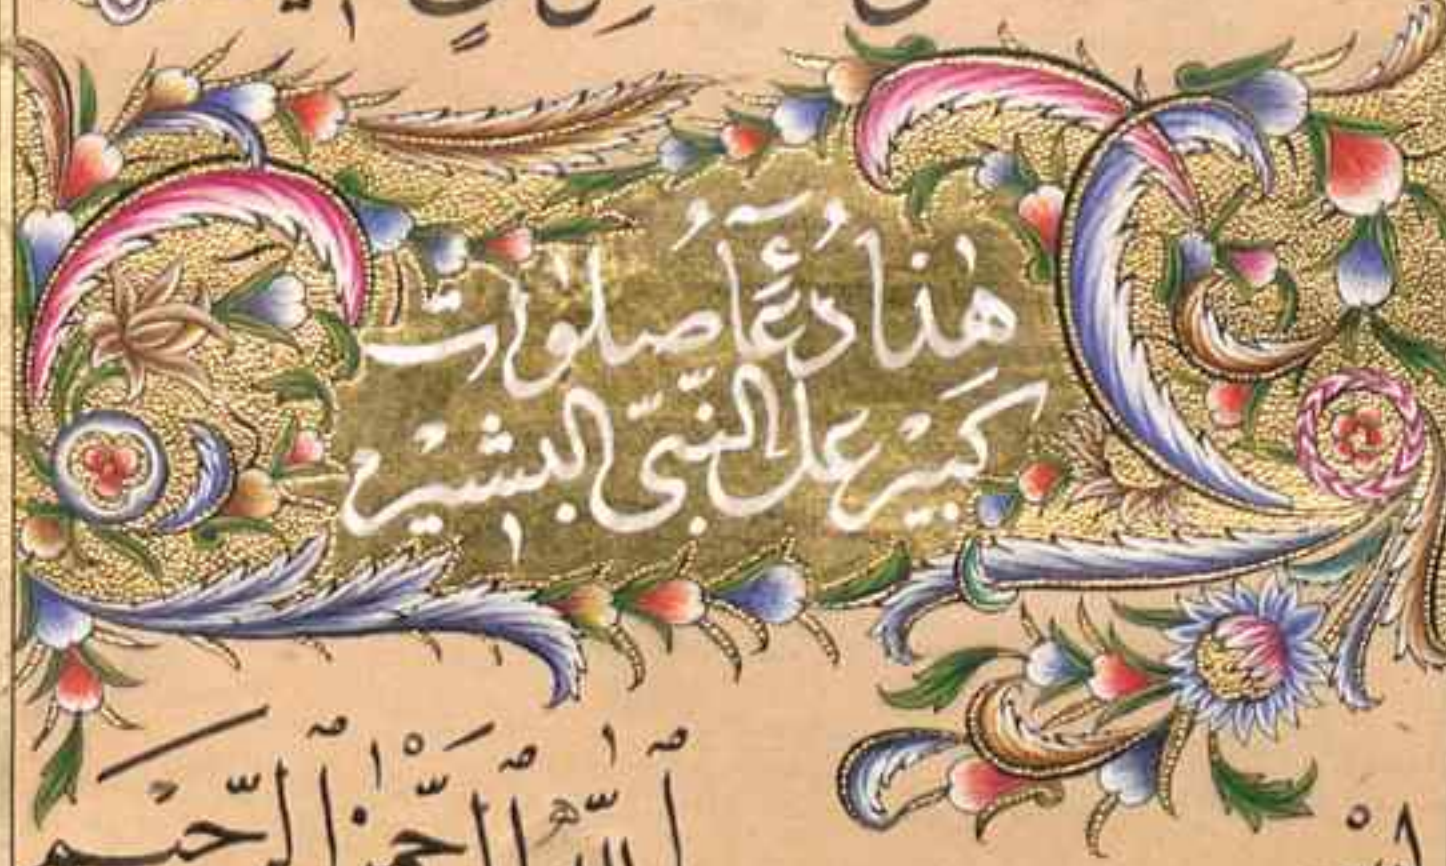 هٰذَا دُعَآءُ صَلَوَات
كَبِيْر عَلَى النَّبِىّ الْبَشِيْر
اللّٰه الرَّحْمٰن الرَّحِيم